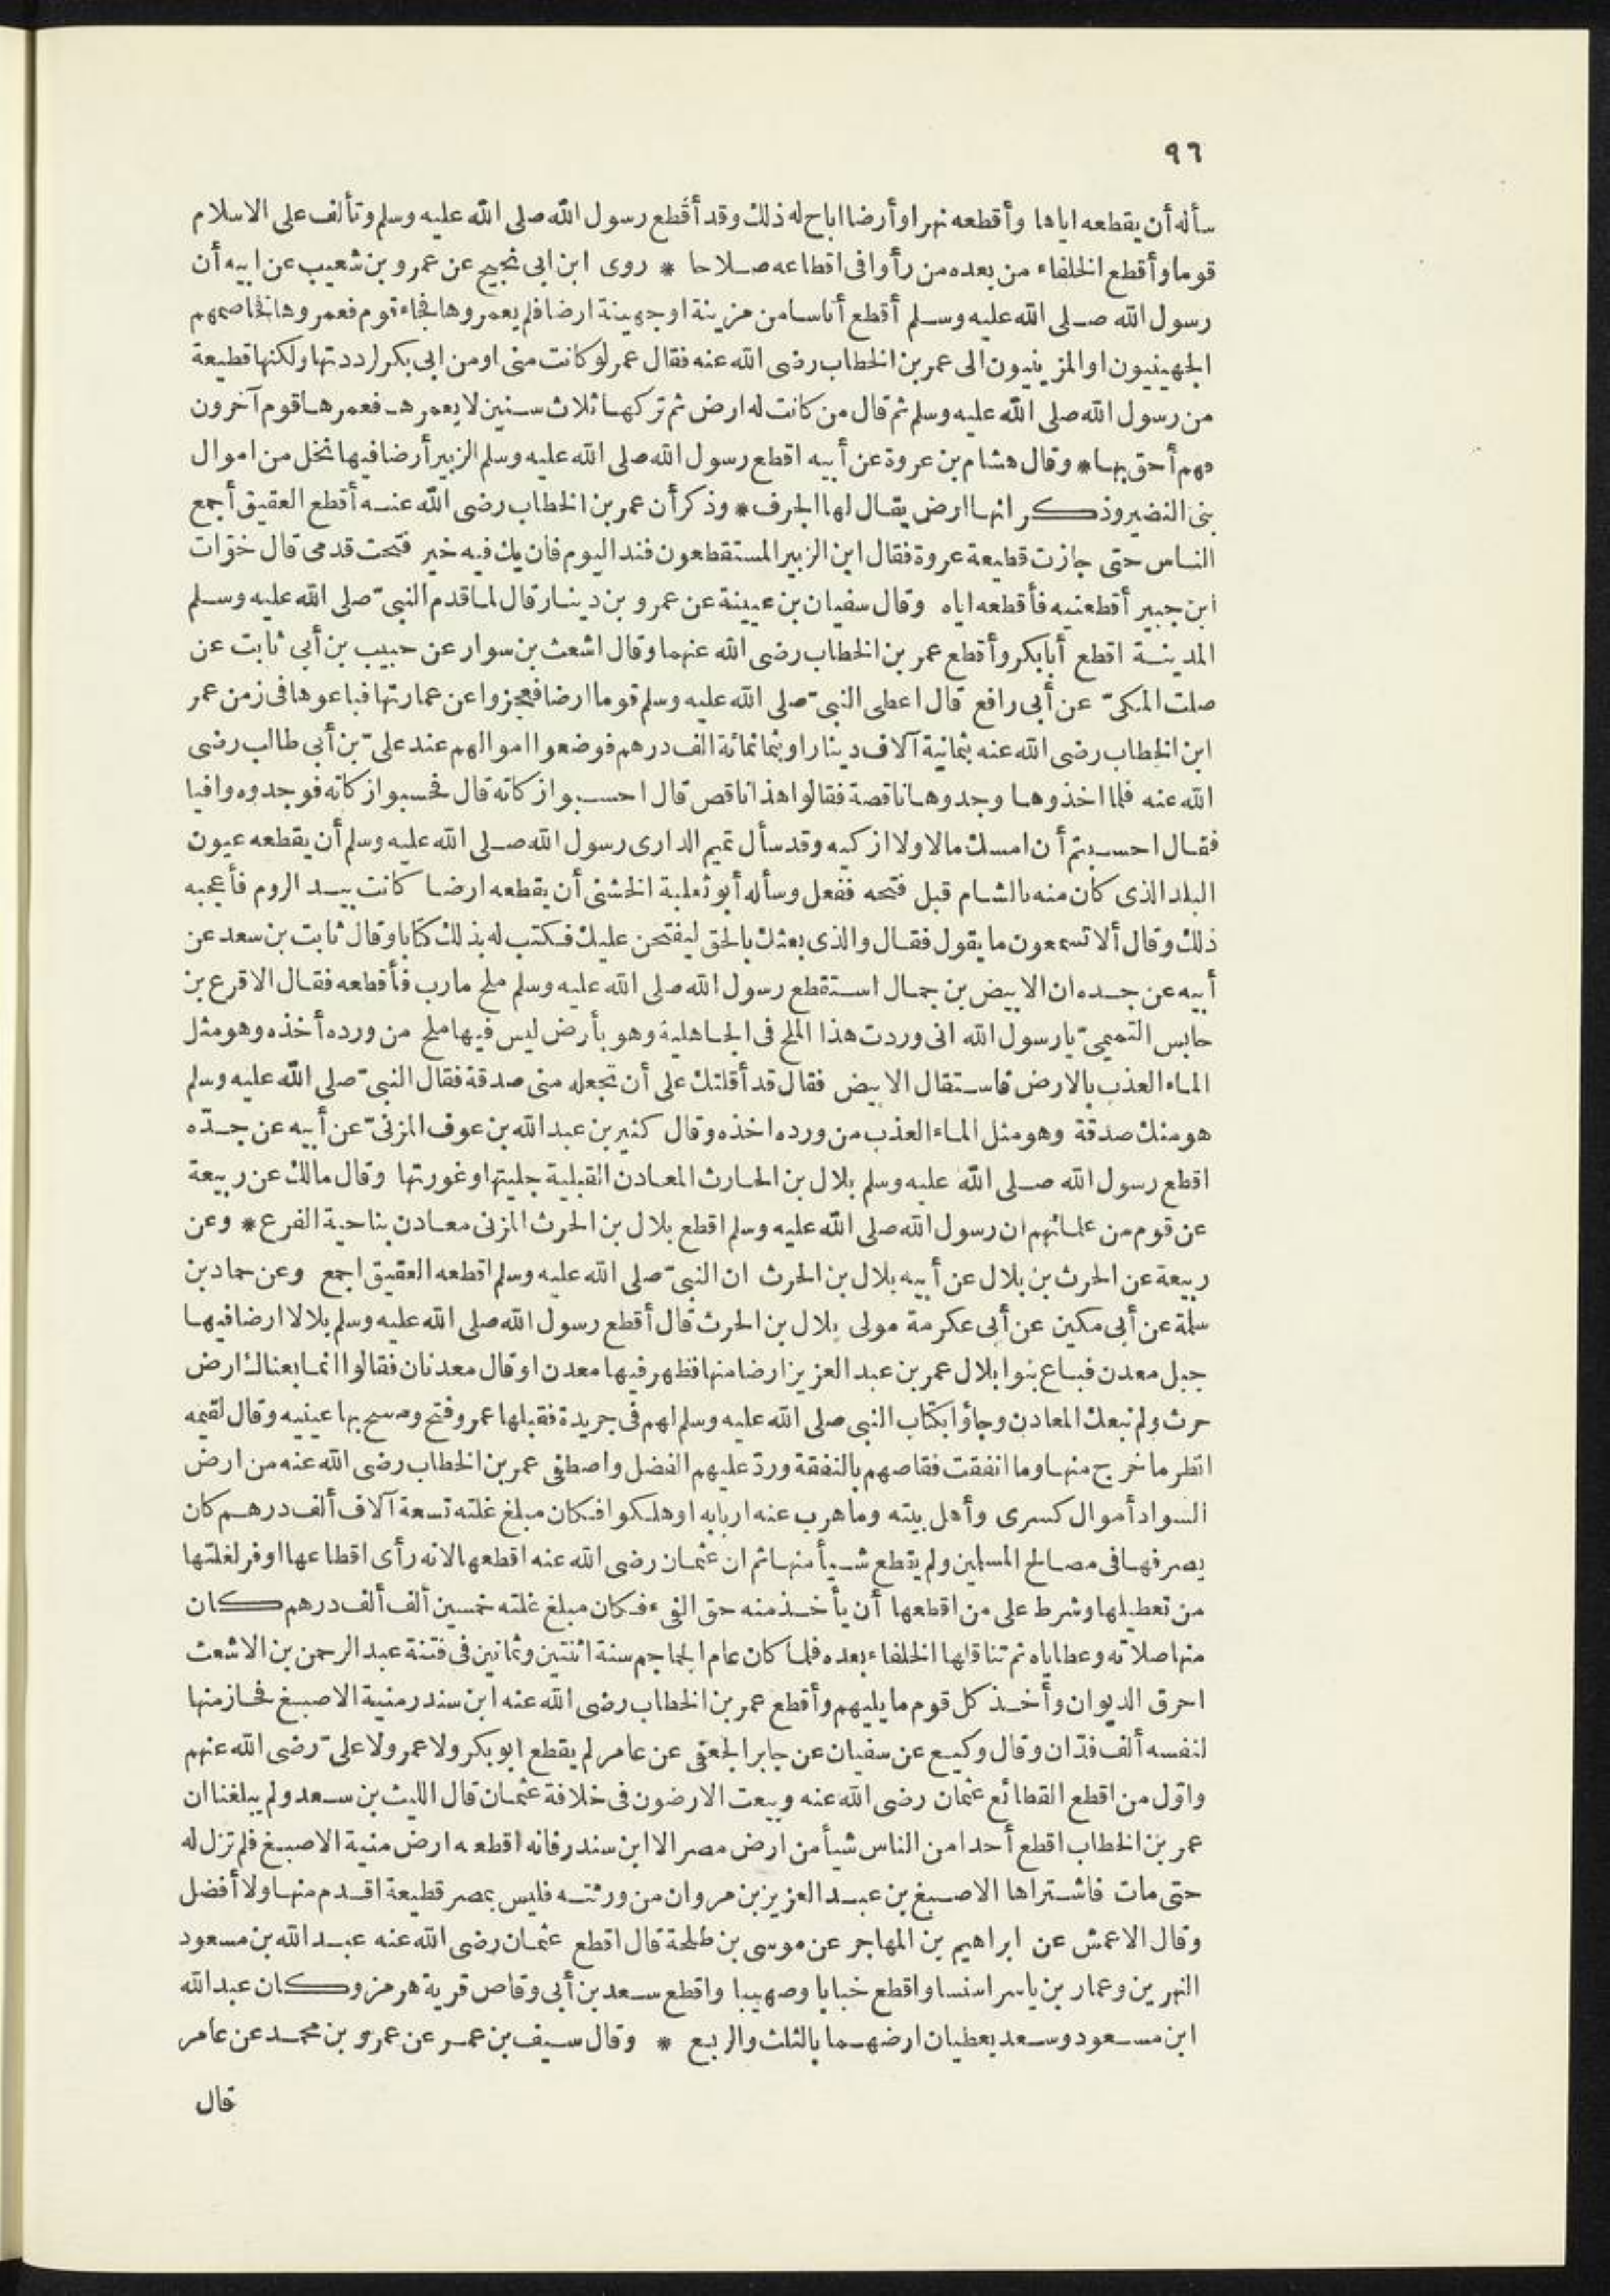 ٩٦
سأله أن يقطعه اياها وأقطعه نهرا وأرضا اباح له ذلك وقد أقطع رسول الله صلى الله عليه وسلم وتألف على الاسلام
قوما وأقطع الخلفاء من بعده من رأوا فى اقطاعه صلاحا * روى ابن ابى نجيح عن عمرو بن شعيب عن ابيه أن
رسول الله صلى الله عليه وسلم أقطع أناسا من مزينة او جهينة ارضا فلم يعمروها فجاء قوم فعمروها فخاصمهم
الجهينيون او المزينيون الى عمر بن الخطاب رضى الله عنه فقال عمر لو كانت منى او من ابى بكر لرددتها ولكنها قطيعة
من رسول الله صلى الله عليه وسلم ثم قال من كانت له ارض ثم تركها ثلاث سنين لا يعمرها فعمرها قوم آخرون
فهم أحق بها * وقال هشام بن عروة عن أبيه اقطع رسول الله صلى الله عليه وسلم الزبير أرضا فيها نخل من اموال
بنى النضير وذكر انها ارض يقال لها الجرف * وذكر أن عمر بن الخطاب رضى الله عنه أقطع العقيق أجمع
الناس حتى جازت قطيعة عروة فقال ابن الزبير المستقطعون فند اليوم فان يك فيه خير فتحت قدمى قال خوّات
ابن جبير أقطعنيه فأقطعه اياه وقال سفيان بن عيينة عن عمرو بن دينار قال لما قدم النبىّ صلى الله عليه وسلم
المدينة اقطع أبا بكر وأقطع عمر بن الخطاب رضى الله عنهما وقال اشعث بن سوار عن حبيب بن أبى ثابت عن
صلت المكىّ عن أبى رافع قال اعطى النبىّ صلى الله عليه وسلم قوما ارضا فعجزوا عن عمارتها فباعوها فى زمن عمر
ابن الخطاب رضى الله عنه بثمانية آلاف دينار او بثمانمائة الف درهم فوضعوا اموالهم عند علىّ بن أبى طالب رضى
الله عنه فلما اخذوها وجدوها ناقصة فقالوا هذا ناقص قال احسبوا زكاته قال فحسبوا زكاته فوجدوه وافيا
فقال احسبتم أن امسك مالا ولا ازكيه وقد سأل تميم الدارى رسول الله صلى الله عليه وسلم أن يقطعه عيون
البلد الذى كان منه بالشام قبل فتحه ففعل وسأله أبو ثعلبة الخشنى أن يقطعه ارضا كانت بيد الروم فأعجبه
ذلك وقال ألا تسمعون ما يقول فقال والذى بعثك بالحق ليفتحن عليك فكتب له بذلك كتابا وقال ثابت بن سعد عن
أبيه عن جده ان الابيض بن جمال استقطع رسول الله صلى الله عليه وسلم ملح مارب فأقطعه فقال الاقرع بن
حابس التميمىّ يا رسول الله انى وردت هذا الملح فى الجاهلية وهو بأرض ليس فيها ملح من ورده أخذه وهو مثل
الماء العذب بالارض فاستقال الابيض فقال قد أقلتك على أن تجعله منى صدقة فقال النبىّ صلى الله عليه وسلم
هو منك صدقة وهو مثل الماء العذب من ورده اخذه وقال كثير بن عبد الله بن عوف المزنىّ عن أبيه عن جدّه
اقطع رسول الله صلى الله عليه وسلم بلال بن الحارث المعادن القبلية جليتها وغورتها وقال مالك عن ربيعة
عن قوم من علمائهم ان رسول الله صلى الله عليه وسلم اقطع بلال بن الحرث المزنى معادن بناحية الفرع * وعن
ربيعة عن الحرث بن بلال عن أبيه بلال بن الحرث ان النبىّ صلى الله عليه وسلم اقطعه العقيق اجمع وعن حماد بن
سلمة عن أبى مكين عن أبى عكرمة مولى بلال بن الحرث قال أقطع رسول الله صلى الله عليه وسلم بلالا ارضا فيها
جبل معدن فباع بنوا بلال عمر بن عبد العزيز ارضا منها فظهر فيها معدن او قال معدنان فقالوا انما بعناك ارض
حرث ولم نبعك المعادن وجاؤا بكتاب النبى صلى الله عليه وسلم لهم فى جريدة فقبلها عمر وفتح ومسح بها عينيه وقال لقيمه
انظر ما خرج منها وما انفقت فقاصهم بالنفقة وردّ عليهم الفضل واصطفى عمر بن الخطاب رضى الله عنه من ارض
السواد أموال كسرى وأهل بيته وما هرب عنه اربابه او هلكوا فكان مبلغ غلته تسعة آلاف ألف درهم كان
يصرفها فى مصالح المسلمين ولم يقطع شيأ منها ثم ان عثمان رضى الله عنه اقطعها لانه رأى اقطاعها اوفر لغلتها
من تعطيلها وشرط على من اقطعها أن يأخذ منه حق الفىء فكان مبلغ غلته خمسين ألف ألف درهم كان
منها صلاته وعطاياه ثم تناقلها الخلفاء بعده فلما كان عام الجماجم سنة اثنتين وثمانين فى فتنة عبد الرحمن بن الاشعث
احرق الديوان وأخذ كل قوم ما يليهم وأقطع عمر بن الخطاب رضى الله عنه ابن سندر منية الاصبغ فحاز منها
لنفسه ألف فدّان وقال وكيع عن سفيان عن جابر الجعفى عن عامر لم يقطع ابو بكر ولا عمر ولا علىّ رضى الله عنهم
واوّل من اقطع القطائع عثمان رضى الله عنه وبيعت الارضون فى خلافة عثمان قال الليث بن سعد ولم يبلغنا ان
عمر بن الخطاب اقطع أحدا من الناس شيأ من ارض مصر الا ابن سندر فانه اقطعه ارض منية الاصبغ فلم تزل له
حتى مات فاشتراها الاصبغ بن عبد العزيز بن مروان من ورثته فليس بمصر قطيعة اقدم منها ولا أفضل
وقال الاعمش عن ابراهيم بن المهاجر عن موسى بن طلحة قال اقطع عثمان رضى الله عنه عبد الله بن مسعود
النهرين وعمار بن ياسر اسنسا واقطع خبابا وصهيبا واقطع سعد بن أبى وقاص قرية هرمز وكان عبد الله
ابن مسعود وسعد يعطيان ارضهما بالثلث والربع * وقال سيف بن عمر عن عمرو بن محمد عن عامر
قال